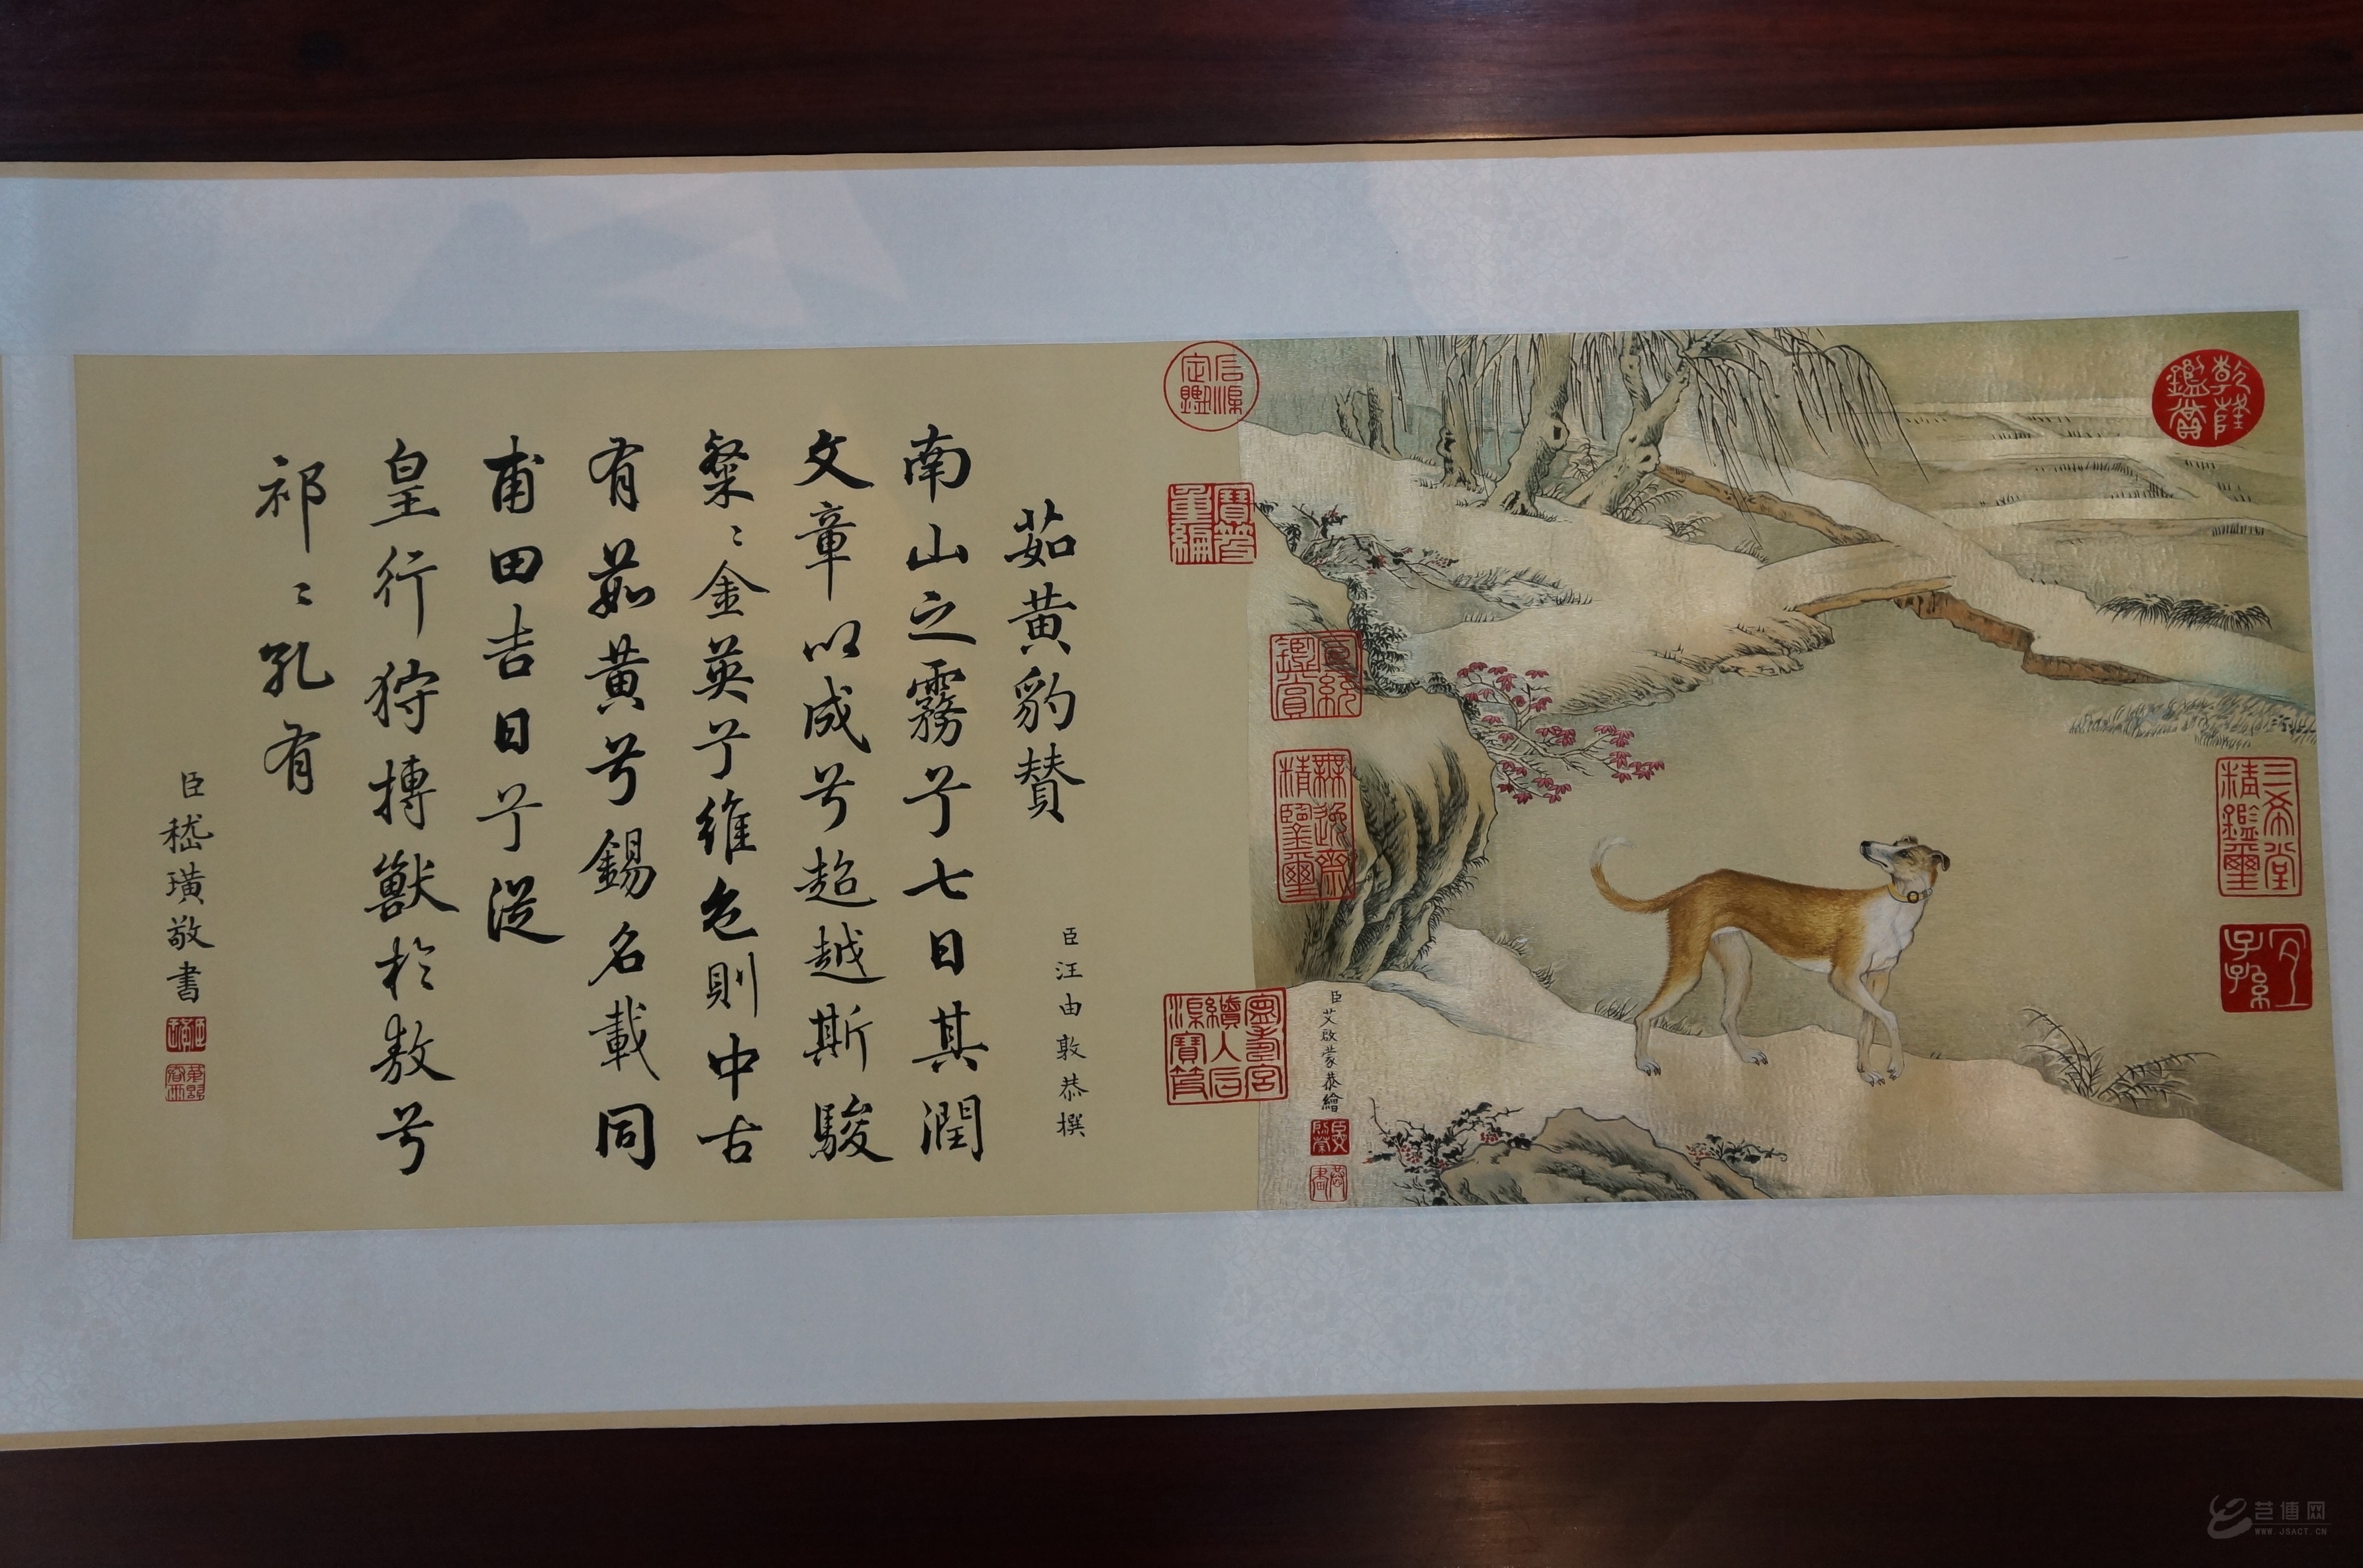 乾隆鑑賞
三希堂精鑑璽
宜子孫
臣艾啟蒙恭繪
石渠定鑑
寶笈重編
宣統鑑賞
無逸齋精鑑璽
寧壽宮續入石渠寶笈
茹黄豹賛
臣汪由敦恭撰
南山之霧兮七日其潤
文章以成兮超越斯駿
粲〻金英兮維色則中古
有茹黄兮錫名載同
甫田吉日兮從
皇行狩摶獸於敖兮
祁〻孔有
臣嵇璜敬書
艺博网
WWW.JSACT.CN